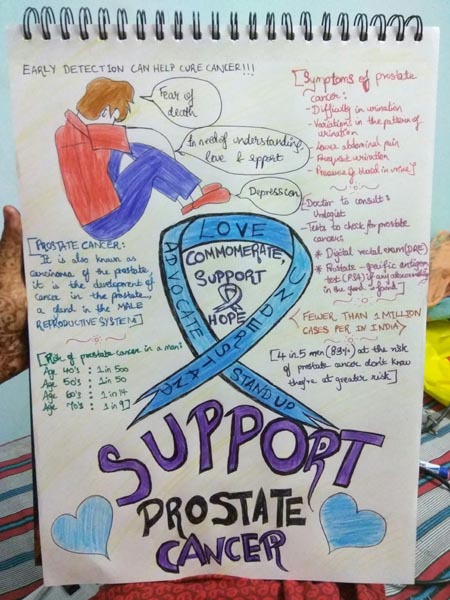 EARLY DETECTION CAN HELP CURE CANCER!!!
Fear of
death
In need of understanding,
love & support
Depression
[Symptoms of prostate
cancer:
- Difficulty in urination
- Variations in the pattern of
urination
- Lower abdominal pain
- Frequent urination
- Presence of blood in urine]
Doctor to consult:
Urologist
- Tests to check for prostate
cancer:
* Digital rectal exam (DRE)
* Prostate - specific antigen
test (PSA) if any abnormality
in the gland is found
[PROSTATE CANCER:
It is also known as
carcinoma of the prostate,
it is the development of
cancer in the prostate,
a gland in the MALE
REPRODUCTIVE SYSTEM]
LOVE
ADVOCATE
UNDERSTAND
STAND UP
COMMOMERATE,
SUPPORT
HOPE
FEWER THAN 1 MILLION
CASES PER IN INDIA
[Risk of prostate cancer in a man:
Age 40's : 1 in 500
Age 50's : 1 in 50
Age 60's : 1 in 14
Age 70's : 1 in 9]
[4 in 5 men (83%) at the risk
of prostate cancer don't know
they're at greater risk]
SUPPORT
PROSTATE
CANCER